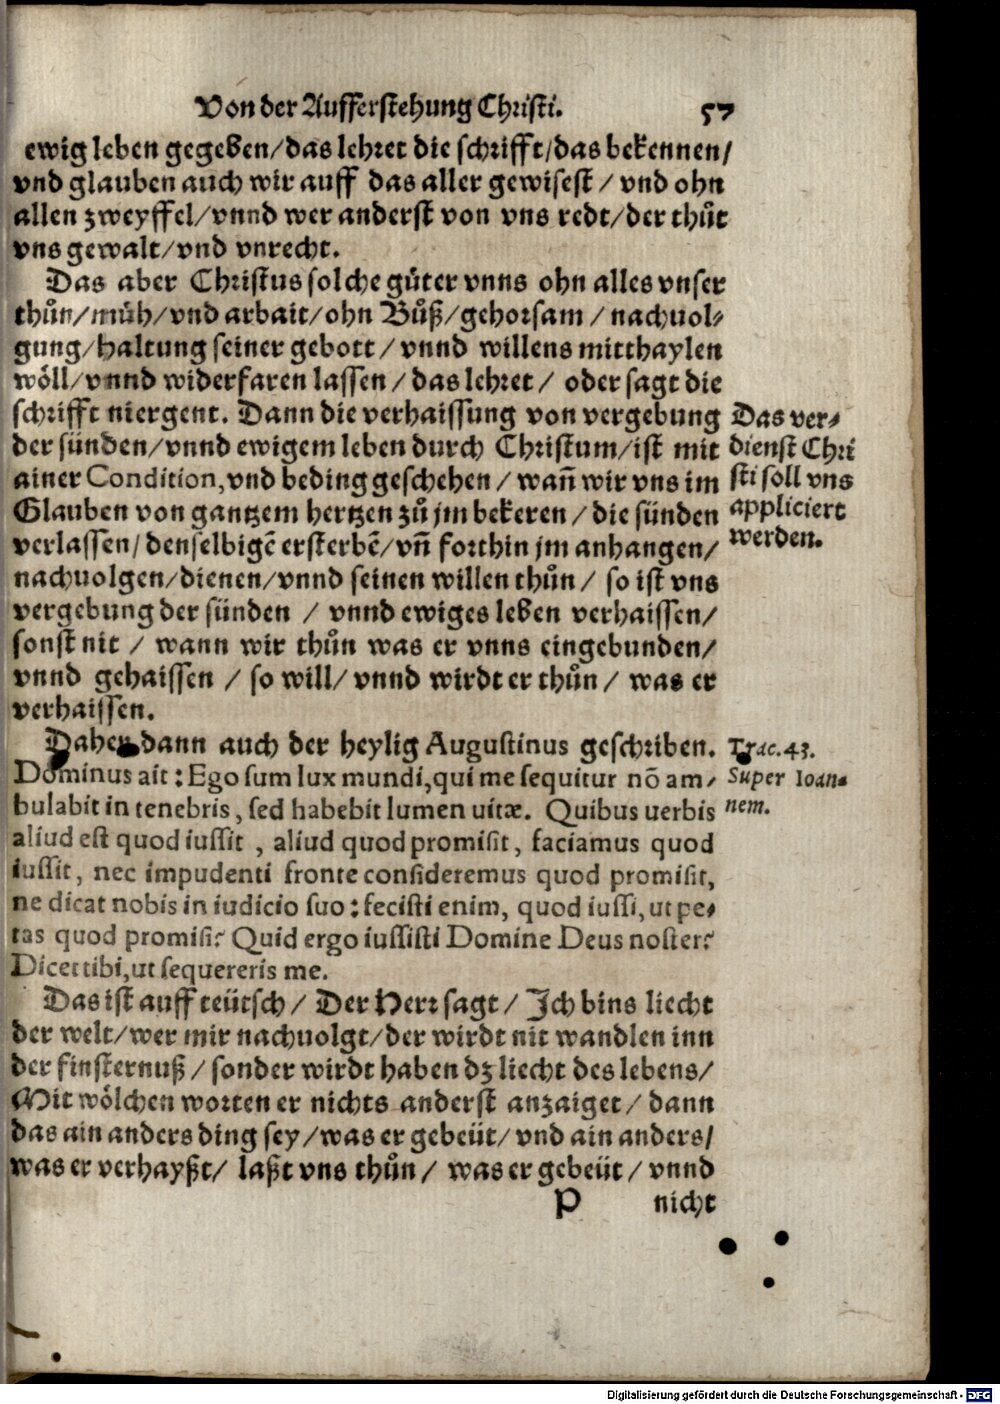 Von der Aufferstehung Christi. 57
ewig leben gegeben/das lehret die schrifft/das bekennen/
vnd glauben auch wir auff das aller gewisest / vnd ohn
allen zweyffel/vnnd wer anderst von vns redt/der thůt
vns gewalt/vnd vnrecht.
Das aber Christus solche gůter vnns ohn alles vnser
thůn/můh/vnd arbait/ohn Bůß/gehorsam / nachuol-
gung/haltung seiner gebott / vnnd willens mitthaylen
wöll/vnnd widerfaren lassen / das lehret / oder sagt die
schrifft niergent. Dann die verhaissung von vergebung
der sünden/vnnd ewigem leben durch Christum/ist mit
ainer Condition, vnd beding geschehen / wañ wir vns im
Glauben von gantzem hertzen zů jm bekeren / die sünden
verlassen/denselbigē ersterbē/vñ forthin jm anhangen/
nachuolgen/dienen/vnnd seinen willen thůn / so ist vns
vergebung der sünden / vnnd ewiges leben verhaissen/
sonst nit / wann wir thůn was er vnns eingebunden/
vnnd gehaissen / so will/ vnnd wirdt er thůn / was er
verhaissen.
Das ver-
dienst Chri
sti soll vns
appliciert
werden.
Daher dann auch der heylig Augustinus geschriben.
Dominus ait : Ego sum lux mundi, qui me sequitur nō am-
bulabit in tenebris, sed habebit lumen uitæ. Quibus uerbis
aliud est quod iussit , aliud quod promisit, faciamus quod
iussit, nec impudenti fronte consideremus quod promisit,
ne dicat nobis in iudicio suo : fecisti enim, quod iussi, ut pe-
tas quod promisi? Quid ergo iussisti Domine Deus noster?
Dicet tibi, ut sequereris me.
Trac. 43.
Super Ioan-
nem.
Das ist auff teütsch / Der Herr sagt / Ich bins liecht
der welt/wer mir nachuolgt/der wirdt nit wandlen inn
der finsternuß / sonder wirdt haben dz liecht des lebens/
Mit wölchen worten er nichts anderst anzaiget / dann
das ain anders ding sey /was er gebeüt/ vnd ain anders/
was er verhayßt/ laßt vns thůn / was er gebeüt / vnnd
P nicht
Digitalisierung gefördert durch die Deutsche Forschungsgemeinschaft - DFG